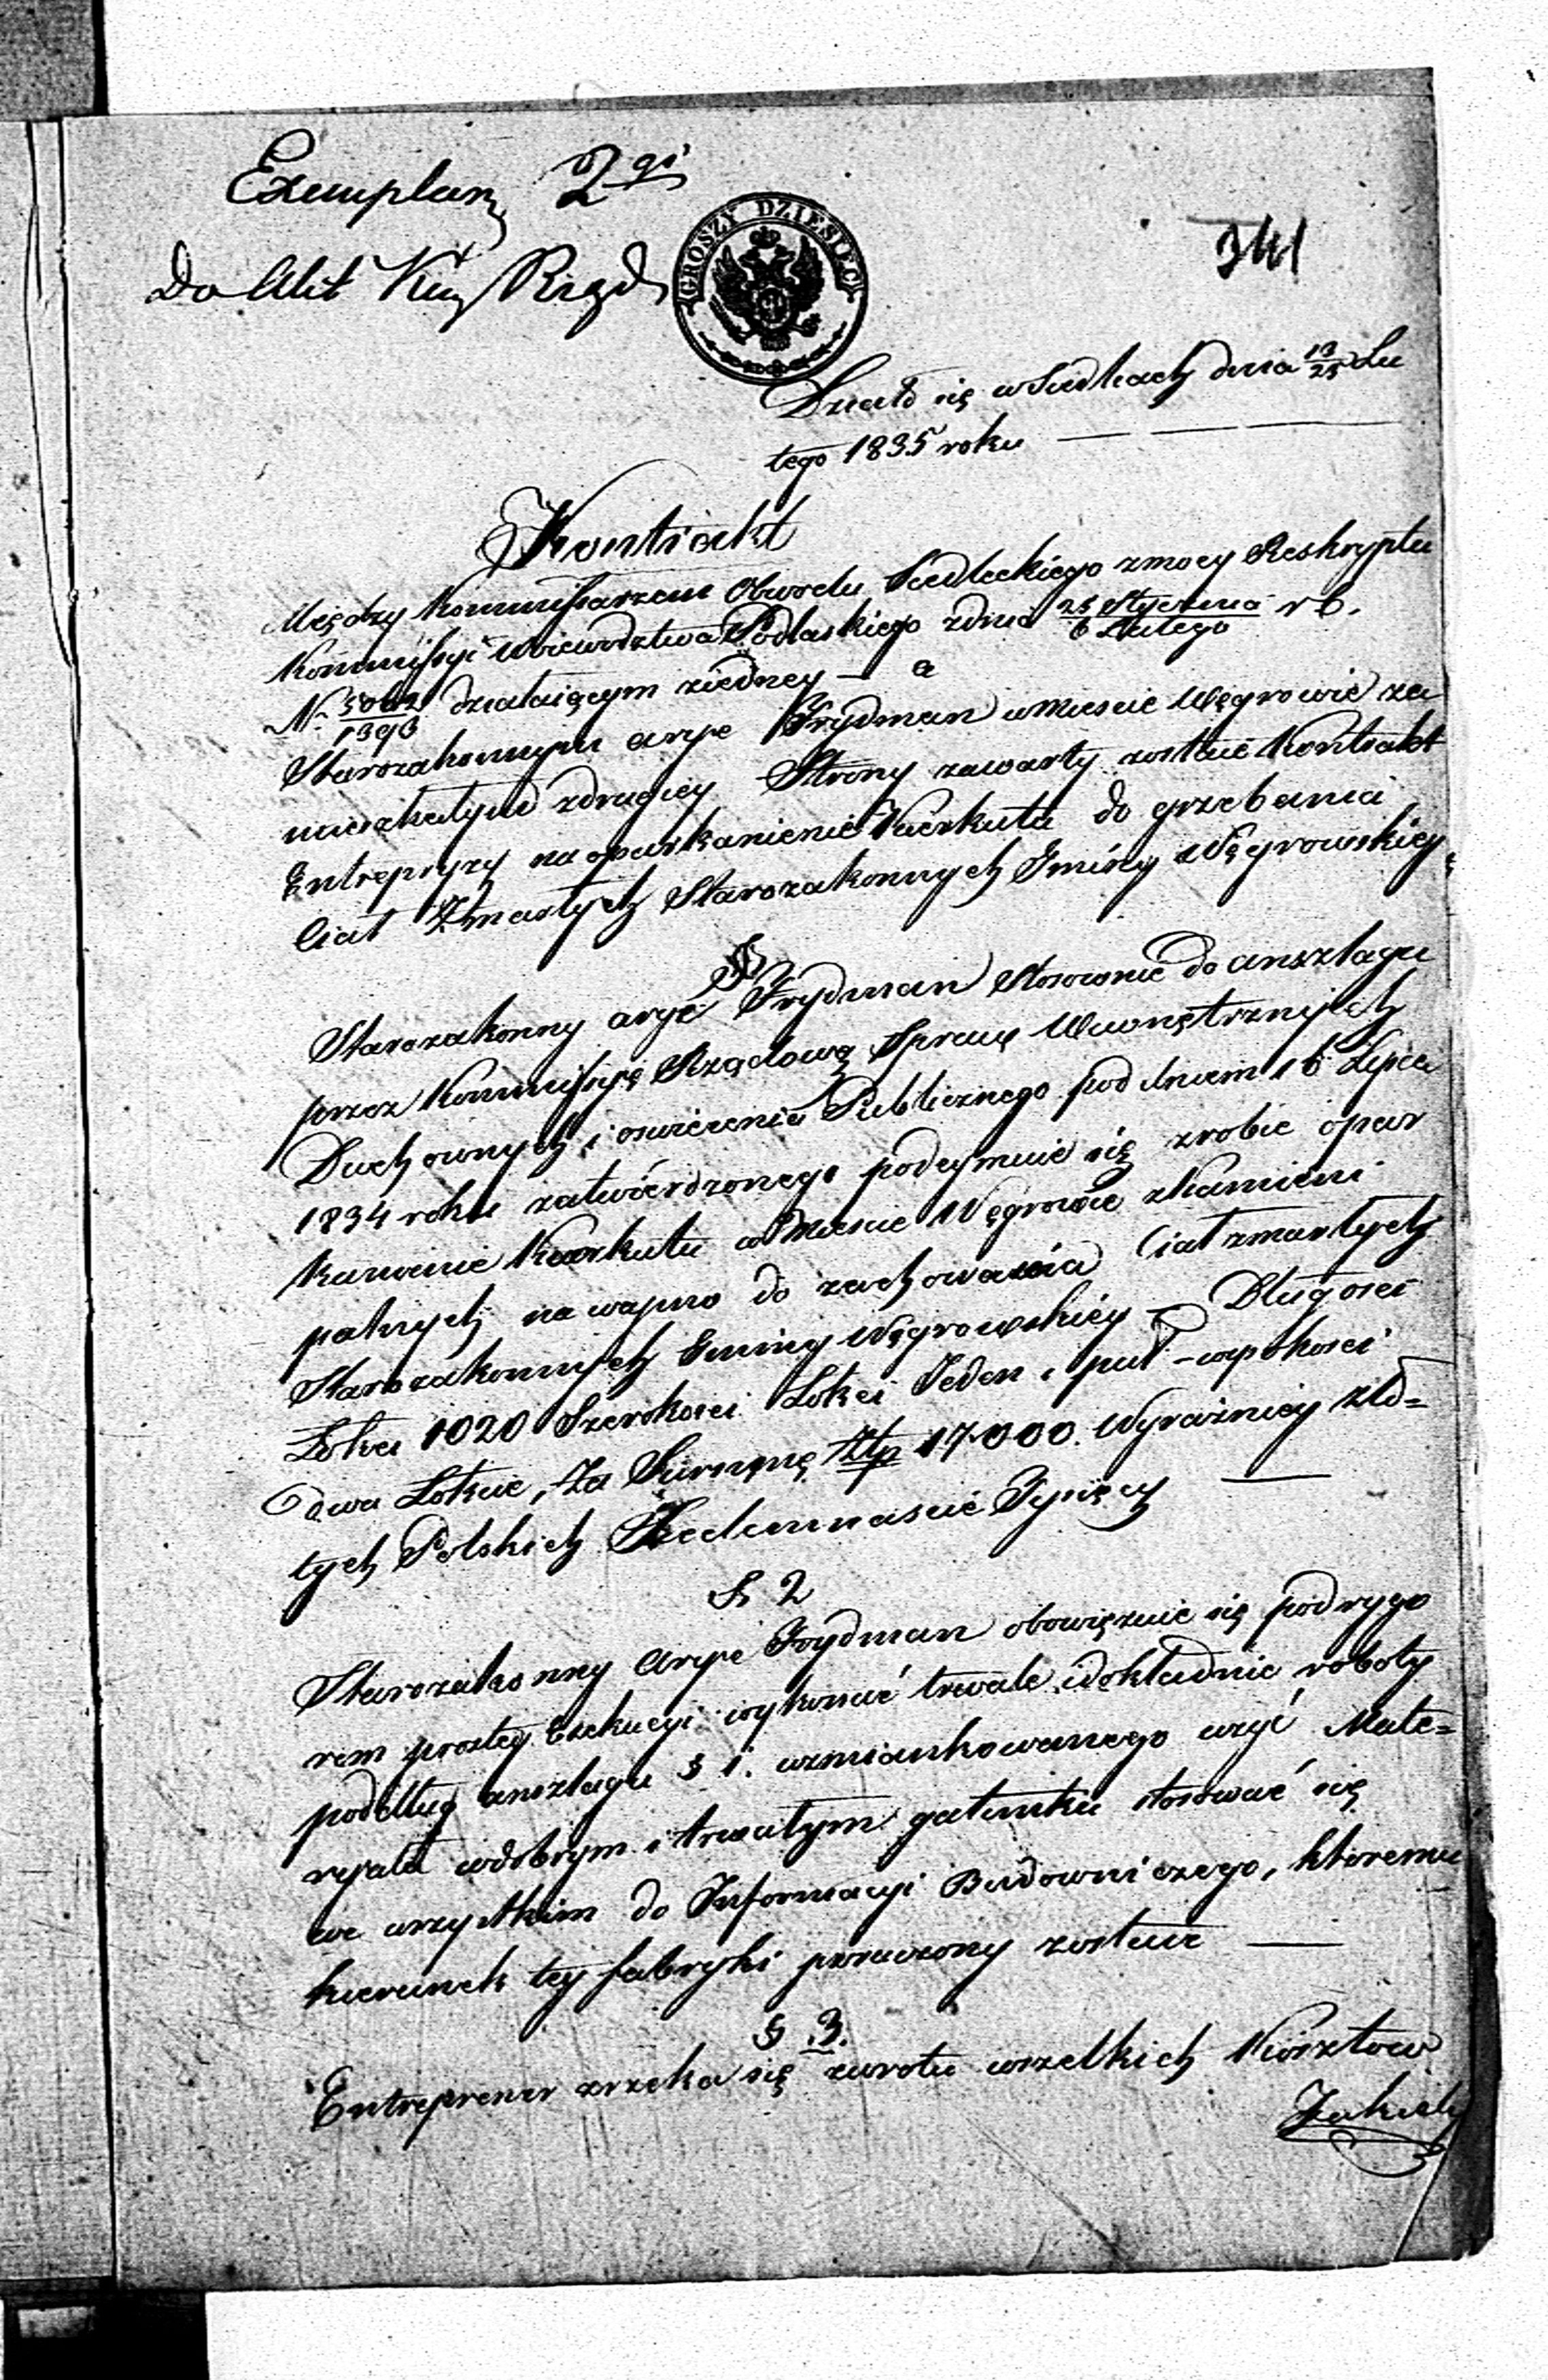 Exemplarz 2gi
Do Akt Kuy Rząd
GROSZY DZIESIĘĆ
341
Działo się w Siedlcach dnia 13/25 Lu
tego 1835 roku
Kontrakt
Między Kommissarzem Obwodu Siedleckiego zmocy Reskryptu
Kommissyi Woiewodztwa Podlaskiego zdnia 25 Stycznia/6 Lutego r b.
N. 1393 działaiącym ziedney — a
Starozakonnym Arye Frydman wmieście Węgrowie za
mieszkałym zdrugiey Strony zawarty zostaie Kontrakt
Entrepryzy na oparkanienie Kierkuta do grzebania
Ciał Zmarłych Starozakonnych Gminy Węgrowskiey
§
Starozakonny Arye Frydman Stosownie do anszlagu
przez Kommissyę Rządową Spraw Wewnętrznych
Duchownych i oswiecenia Publicznego pod dniem 16 Lipca
1834 roku zatwierdzonego podeymuie się zrobić opar
kanienie Kierkuta w Miescie Węgrowie zkamieni
polnych na wapno do zachowania Ciał zmarłych
Starozakonnych Gminy Węgrowskiey — Długosci
Łokci 1020 Szerokosci Łokci Jeden i puł – wysokosci
dwa Łokcie, Za Summę Złp 17000. Wyrażniey zło=
tych Polskich Siedemnascie Tysięcy
§ 2
Starozakonny Arye Frydman obowięzuie się pod rygo
rem prostey Exekucyi wykonać trwale i dokładnie roboty
podług anszlagu § 1. wzmiankowanego użyć Mate=
ryału wdobrym i trwałym gatunku stosować się
we wszystkim do Informacyi Budowniczego, ktoremu
kierunek tey fabryki poruczony zostanie
§ 3.
Entreprener zrzeka się zwrotu wszelkich Kosztow
Jakich